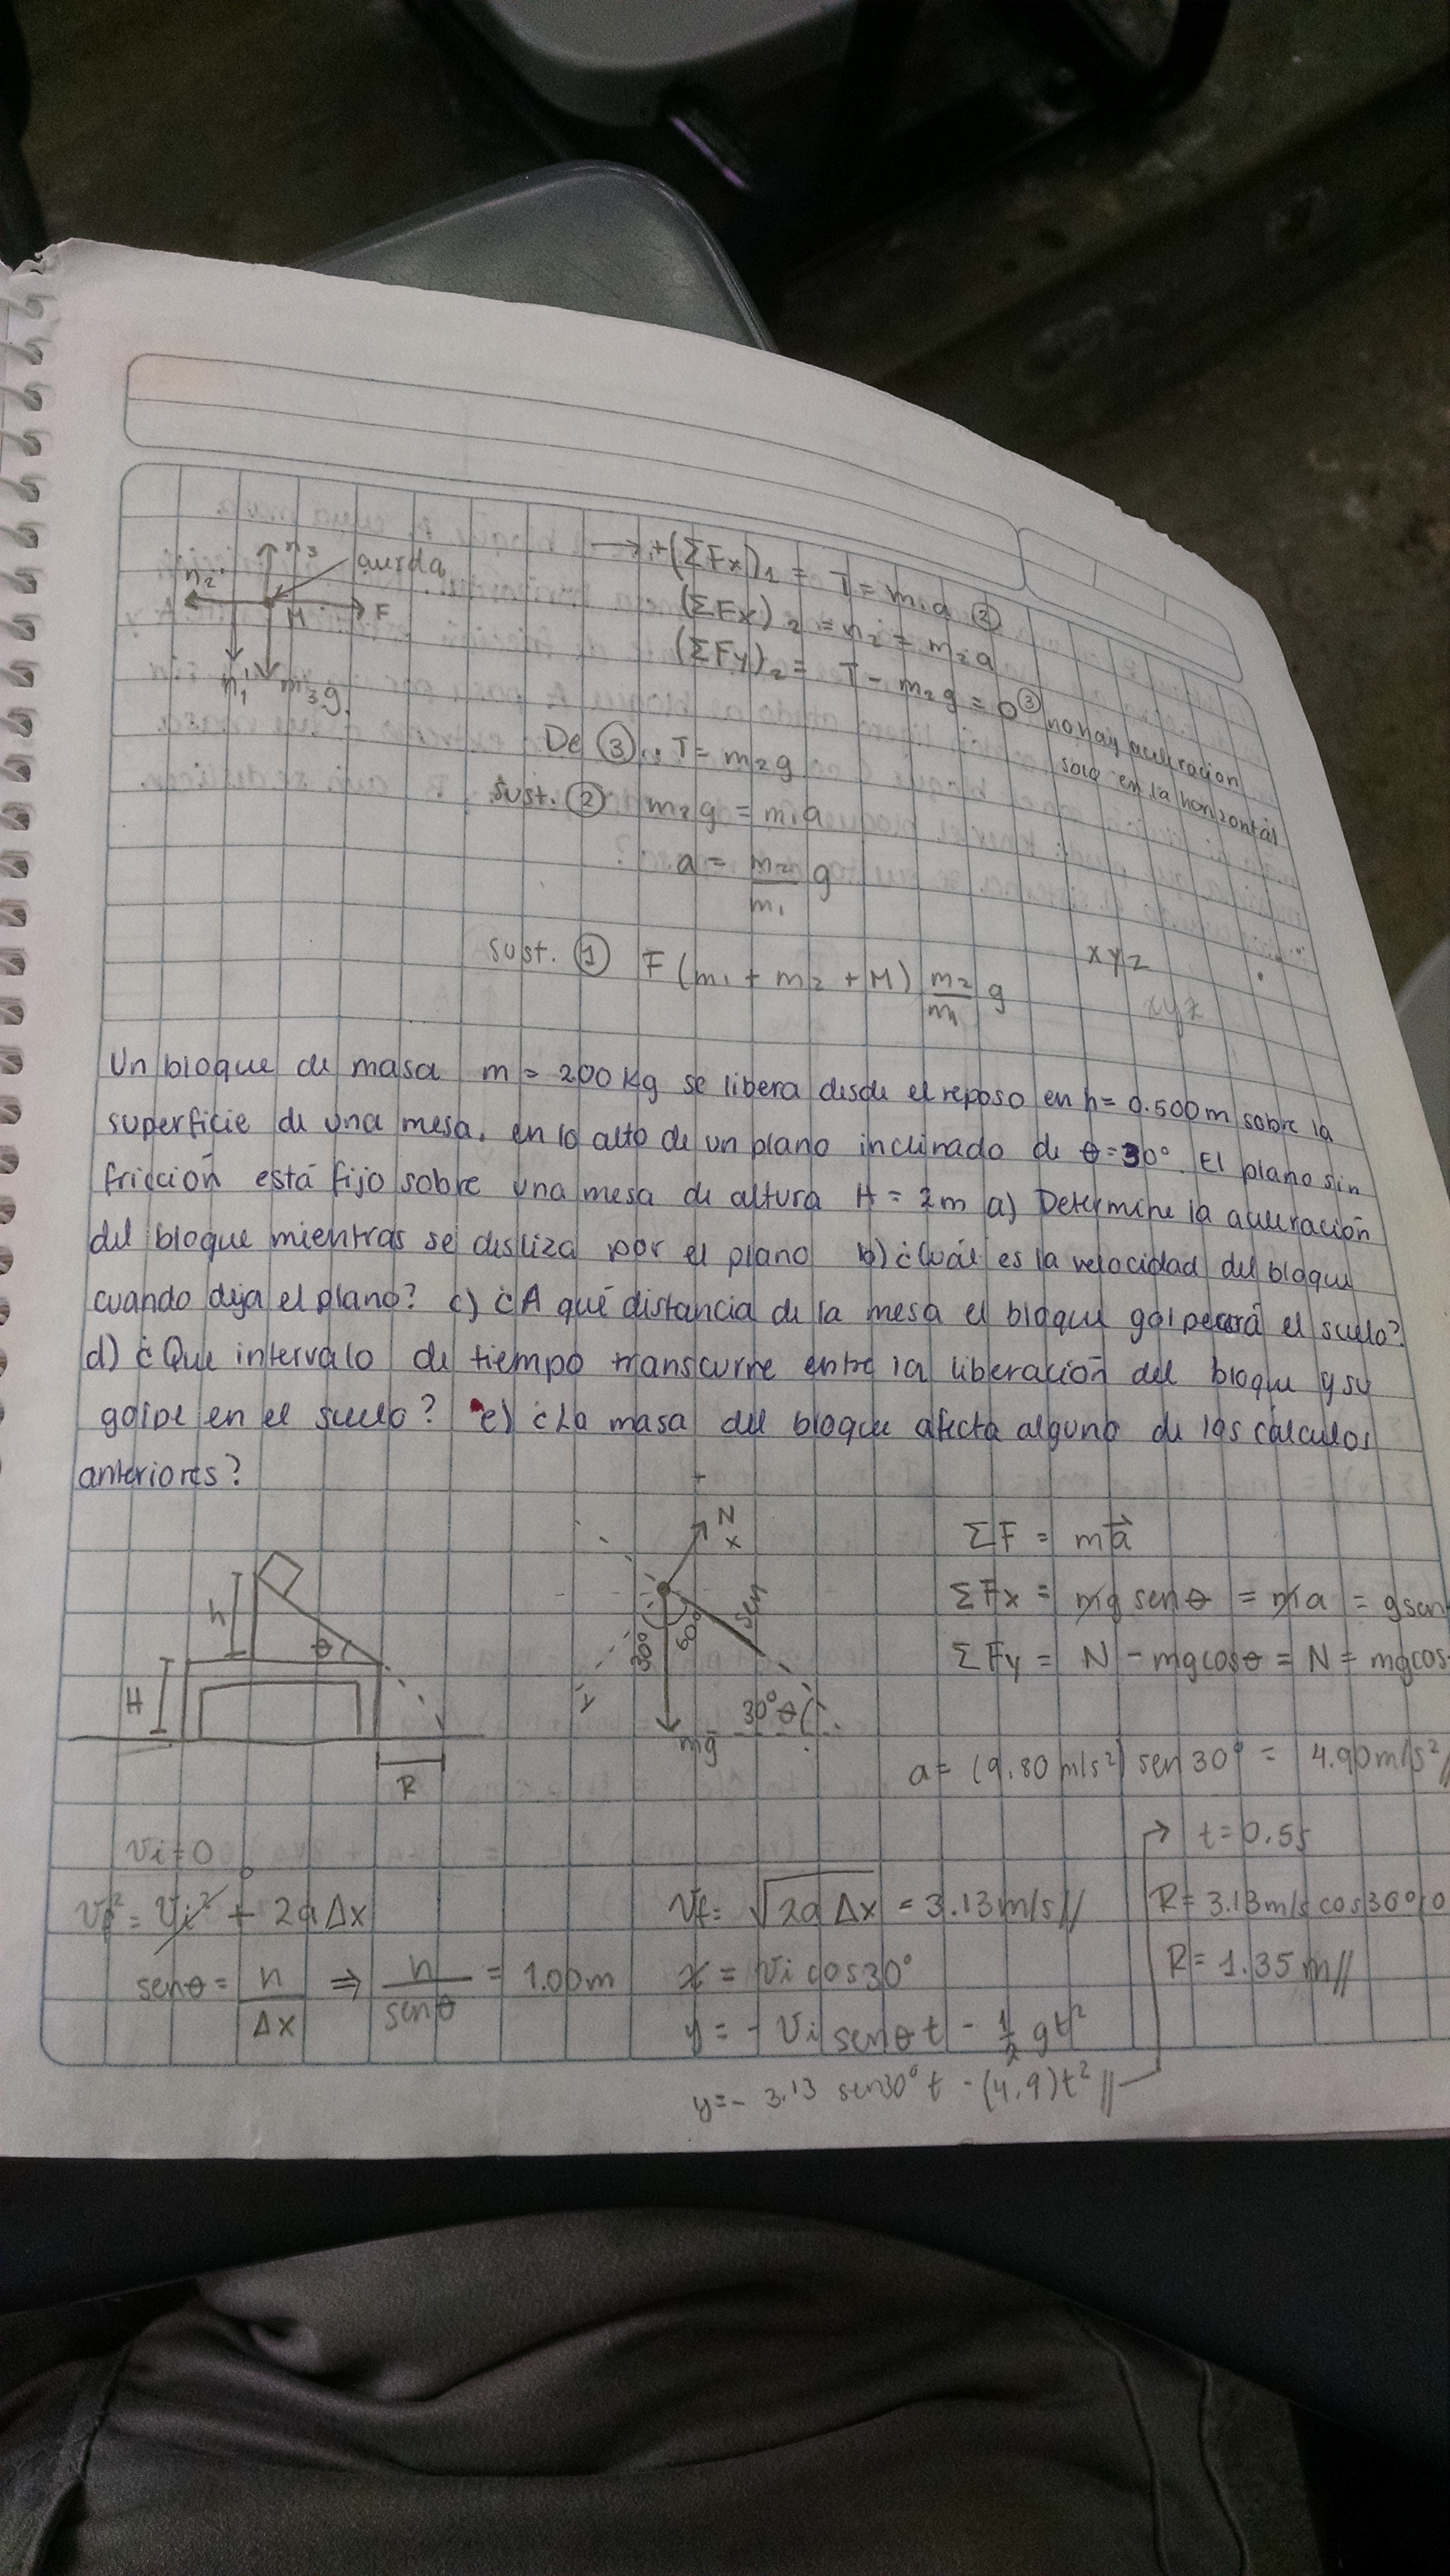 n₃
cuerda
n₂
M
F
n₁
m₃g
→+(ΣFx)₁ = T = m₁a ②
(ΣFx)₂ = n₂ = m₂a
(ΣFy)₂ = T - m₂g = 0 ③ no hay aceleración
solo en la horizontal
De ③ .. T = m₂g
Sust. ② m₂g = m₁a
a = m₂/m₁ g
sust. ① F (m₁ + m₂ + M) m₂/m₁ g
xyz
xyz
Un bloque de masa m = 200 kg se libera desde el reposo en h = 0.500m sobre la
superficie de una mesa, en lo alto de un plano inclinado de θ = 30°. El plano sin
fricción está fijo sobre una mesa de altura H = 2m a) Determine la aceleración
del bloque mientras se desliza por el plano b) ¿Cuál es la velocidad del bloque
cuando deja el plano? c) ¿A qué distancia de la mesa el bloque golpeará el suelo?
d) ¿Que intervalo de tiempo transcurre entre la liberación del bloque y su
golpe en el suelo? e) ¿La masa del bloque afecta alguno de los cálculos
anteriores?
h
θ
H
R
N
x
30°
60°
sen
y
mg
30° θ
ΣF = ma⃗
ΣFx = mg senθ = ma = gsen
ΣFy = N - mgcosθ = N = mgcos
a = (9.80 m/s²) sen 30° = 4.90m/s² //
vi = 0
vf² = vi² + 2aΔx
0
senθ = h/Δx ⇒ h/senθ = 1.00m
vf = √2aΔx = 3.13m/s //
x = vi cos30°
y = - vi senθ t - ½ gt²
y = - 3.13 sen30° t - (4.9)t² //
→ t = 0.5s
R = 3.13m/s cos30° (0
R = 1.35 m //